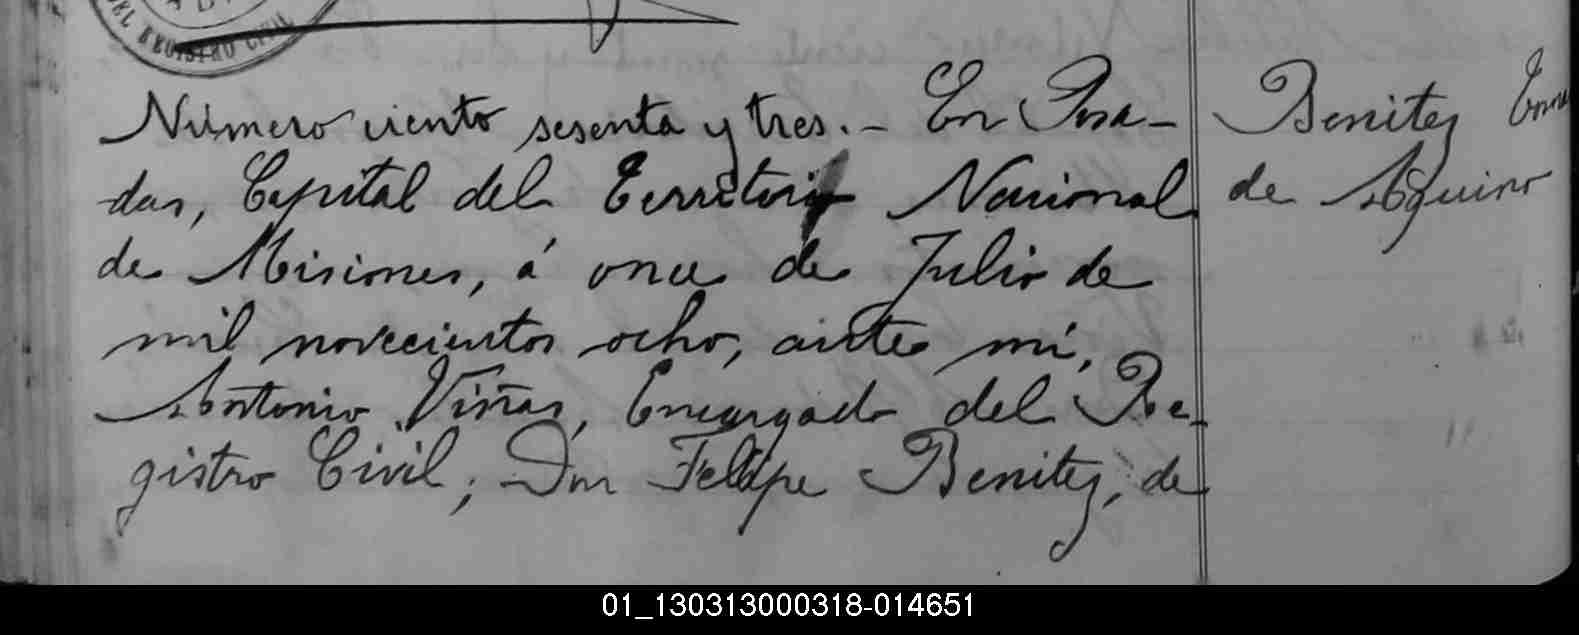 DEL REGISTRO CIVIL
Número ciento sesenta y tres.- En Posa-
das, Capital del Territorio Nacional
de Misiones, á once de Julio de
mil novecientos ocho, ante mí,
Antonio Viñas, Encargado del Re-
gistro Civil, Don Felipe Benitez, de
Benitez
de Aquino
01_130313000318-014651